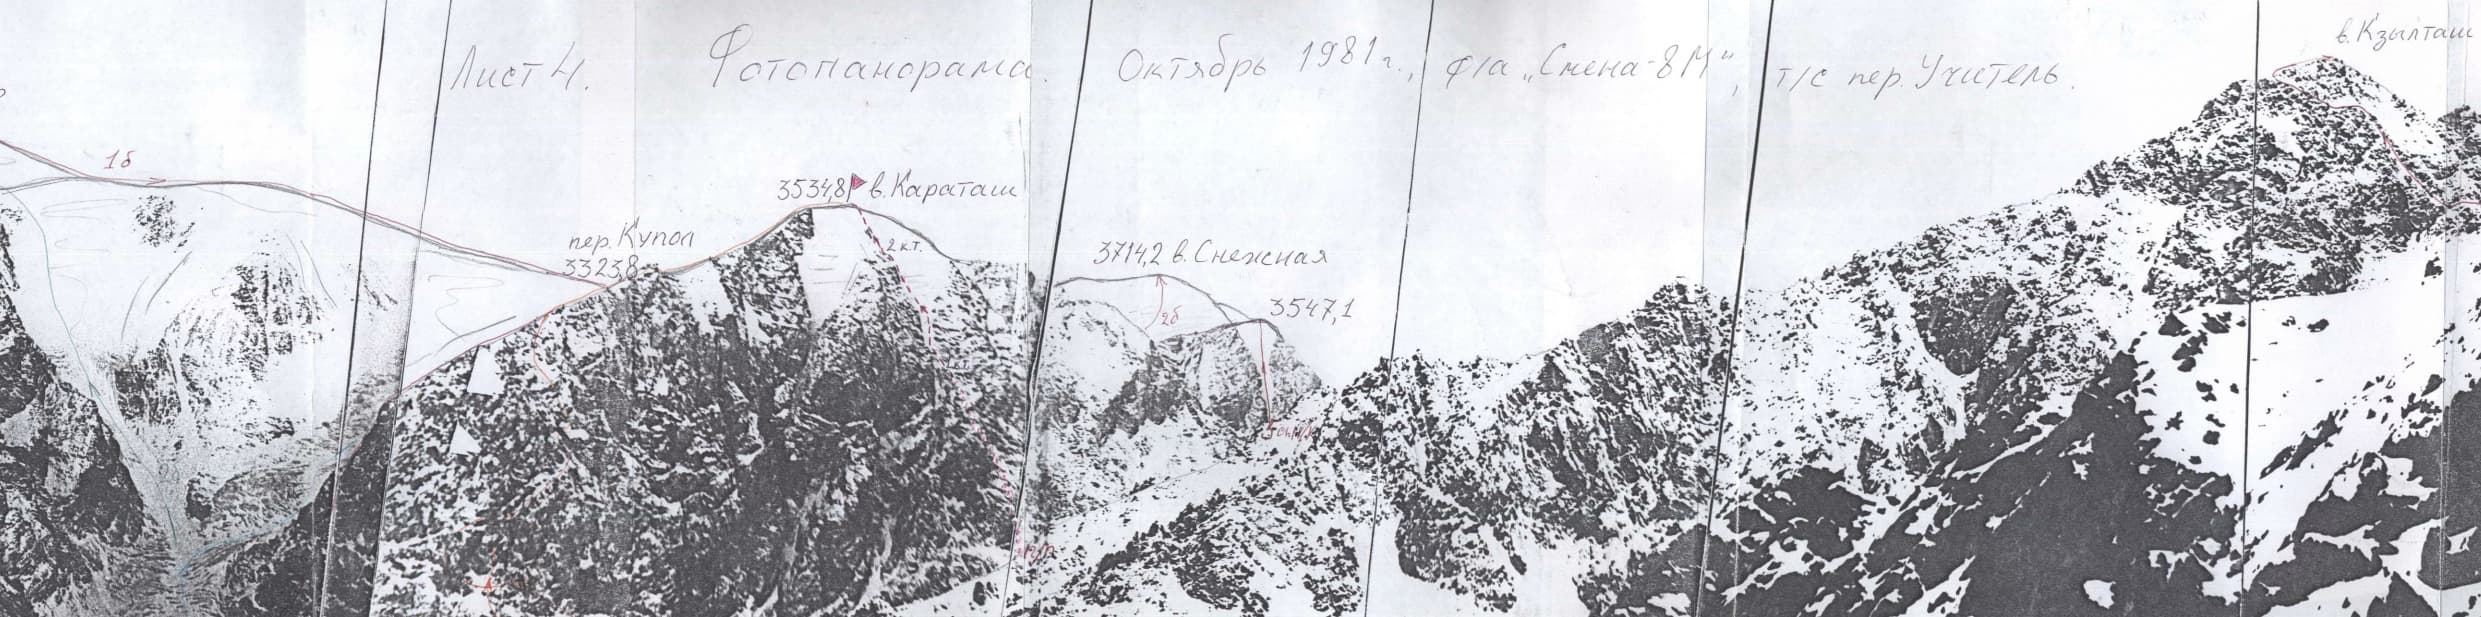 Лист 4. Фотопанорама. Октябрь 1981 г., ф/а „Смена-8М“, т/с пер. Учитель.
в. Кзылташ
1б
3534,8 в. Караташ
пер. Купол
3323,8
2 к.т.
3714,2 в. Снежная
2б
3547,1
1 к.т.